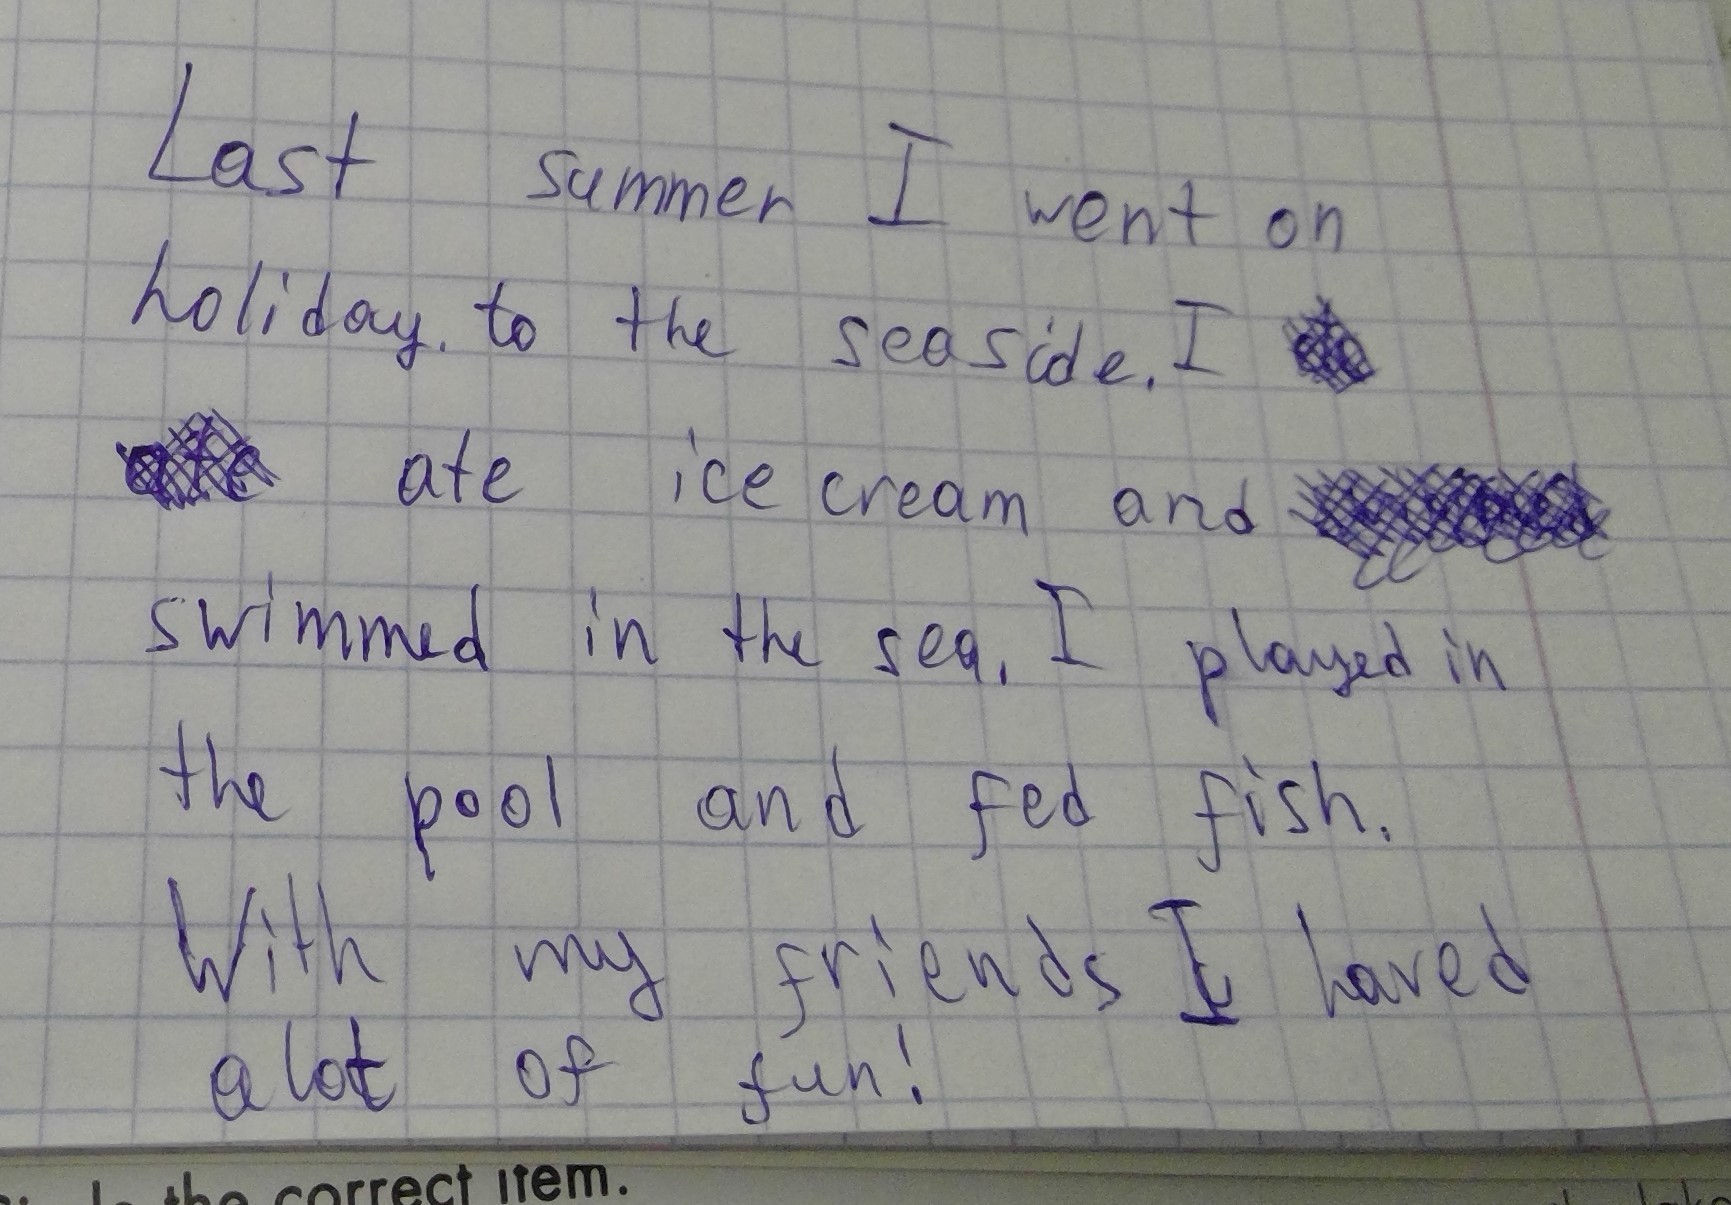 Last summer I went on
holiday. to the seaside. I
ate ice cream and
swimmed in the sea. I played in
the pool and fed fish.
With my friends I haved
a lot of fun!
the correct item.